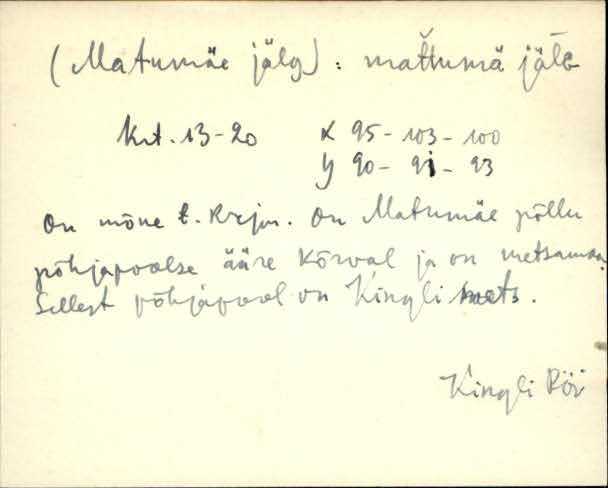 (Matumäe jälg) : mattumä jälg
Krt. 13-20 X 95 - 103 - 100
Y 90 - 91 - 93
On mõne t. Krjn. On Matumäe põllu
põhjapoolse ääre kõrval ja on metsamaa.
Sellest põhjapool on Kingli mets.
Kingli